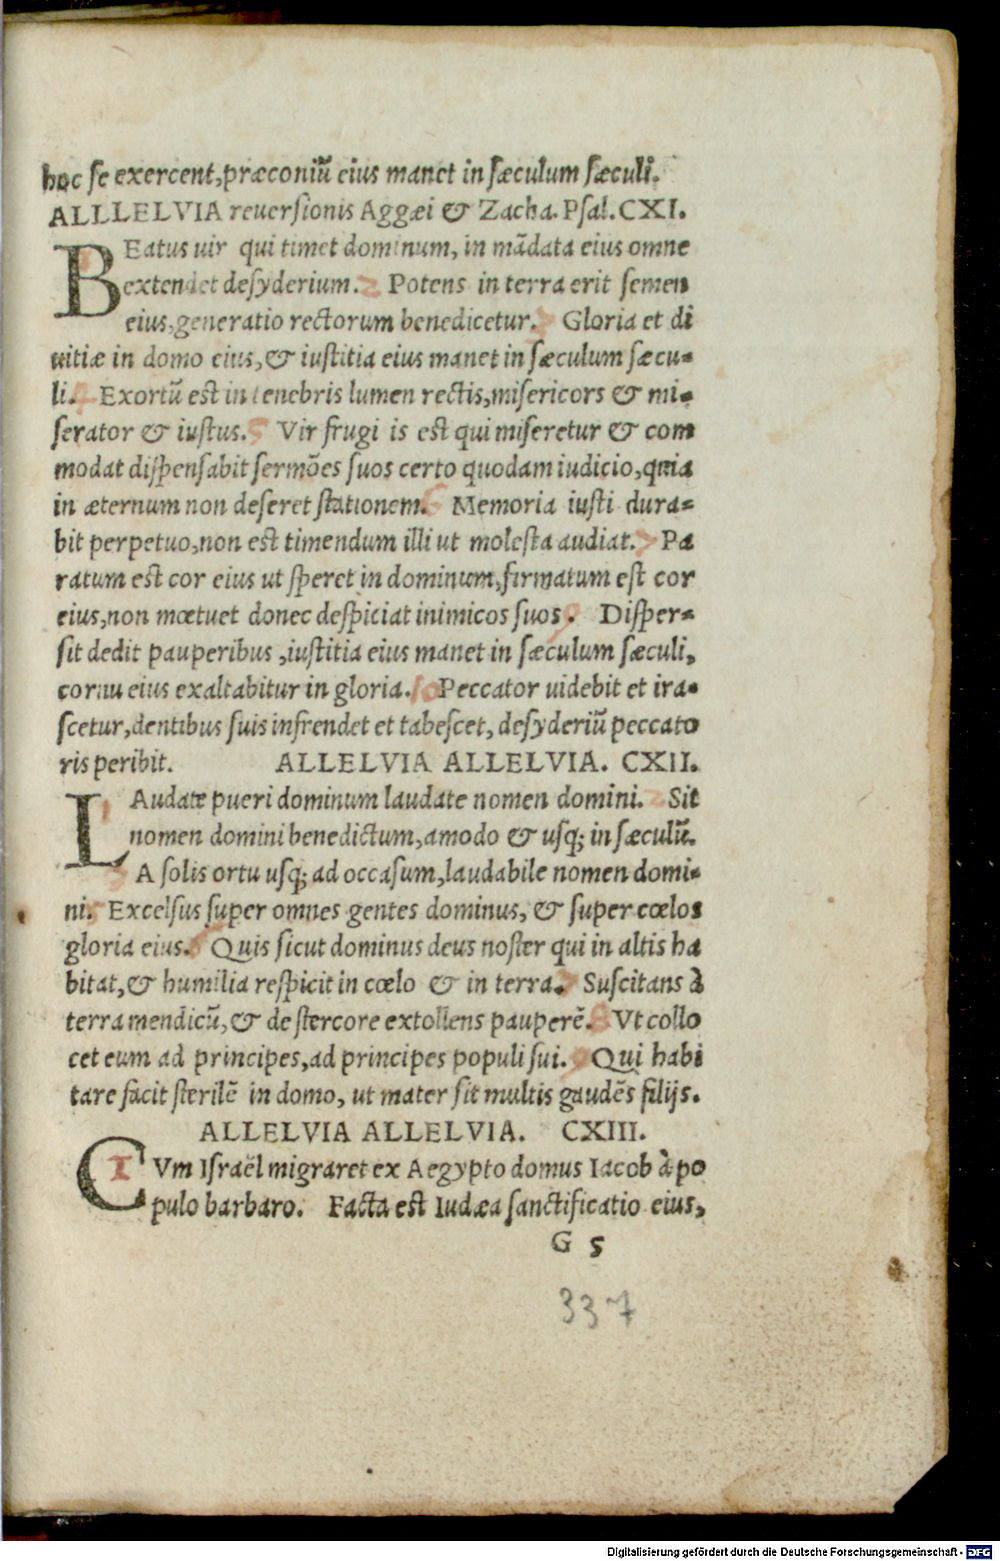 hoc se exercent,præconiū eius manet in sæculum sæculi.
ALLLELVIA reuersionis Aggæi & Zacha. Psal. CXI.
BEatus uir qui timet dominum, in mādata eius omne
extendet desyderium. 2 Potens in terra erit semen
eius,generatio rectorum benedicetur. Gloria et di
uitiæ in domo eius,& iustitia eius manet in sæculum sæcu-
li. Exortū est in tenebris lumen rectis,misericors & mi-
serator & iustus. 5 Vir frugi is est qui miseretur & com
modat dispensabit sermōes suos certo quodam iudicio,quia
in æternum non deseret stationem. 6 Memoria iusti dura-
bit perpetuo,non est timendum illi ut molesta audiat. Pa
ratum est cor eius ut speret in dominum,firmatum est cor
eius,non mœtuet donec despiciat inimicos suos. 9 Disper-
sit dedit pauperibus ,iustitia eius manet in sæculum sæculi,
cornu eius exaltabitur in gloria. 10 Peccator uidebit et ira-
scetur,dentibus suis infrendet et tabescet, desyderiū peccato
ris peribit. ALLELVIA ALLELVIA. CXII.
LAudate pueri dominum laudate nomen domini. Sit
nomen domini benedictum,amodo & usq; in sæculū.
A solis ortu usq; ad occasum,laudabile nomen domi-
ni. Excelsus super omnes gentes dominus, & super cœlos
gloria eius. Quis sicut dominus deus noster qui in altis ha
bitat,& humilia respicit in cœlo & in terra. Suscitans à
terra mendicū,& de stercore extollens pauperē. 8 Vt collo
cet eum ad principes,ad principes populi sui. 9 Qui habi
tare facit sterilē in domo, ut mater sit multis gaudēs filijs.
ALLELVIA ALLELVIA. CXIII.
C1Vm Israël migraret ex Aegypto domus Iacob à po
pulo barbaro. Facta est Iudæa sanctificatio eius,
G 5
337
Digitalisierung gefördert durch die Deutsche Forschungsgemeinschaft - DFG